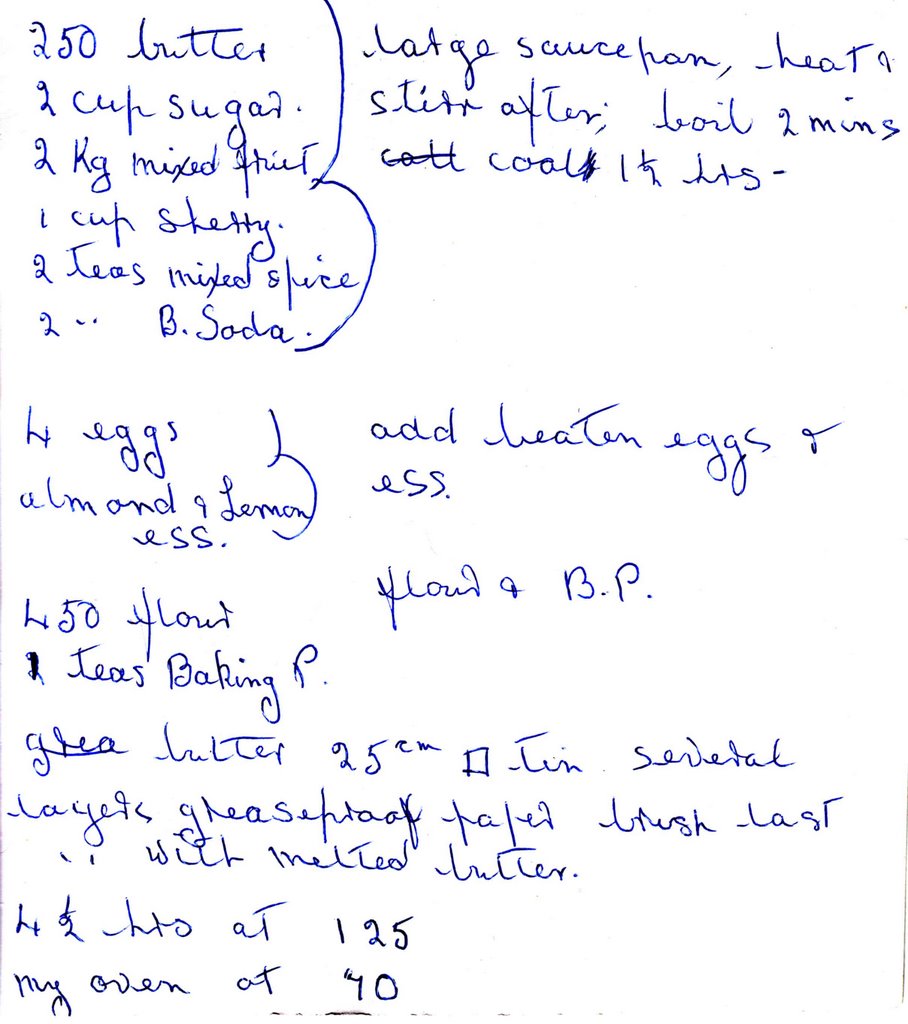 250 butter
2 cup sugar.
2 Kg mixed fruit
1 cup sherry.
2 teas mixed spice
2 " B. Soda.
large saucepan, heat &
stirr after, boil 2 mins
cool 1½ hrs -
4 eggs
almond & Lemon
ess.
add beaten eggs &
ess.
450 flour
1 teas Baking P.
flour & B.P.
butter 25cm □ tin several
layers greaseproof paper brush last
" with melted butter.
4½ hrs at 125
my oven at